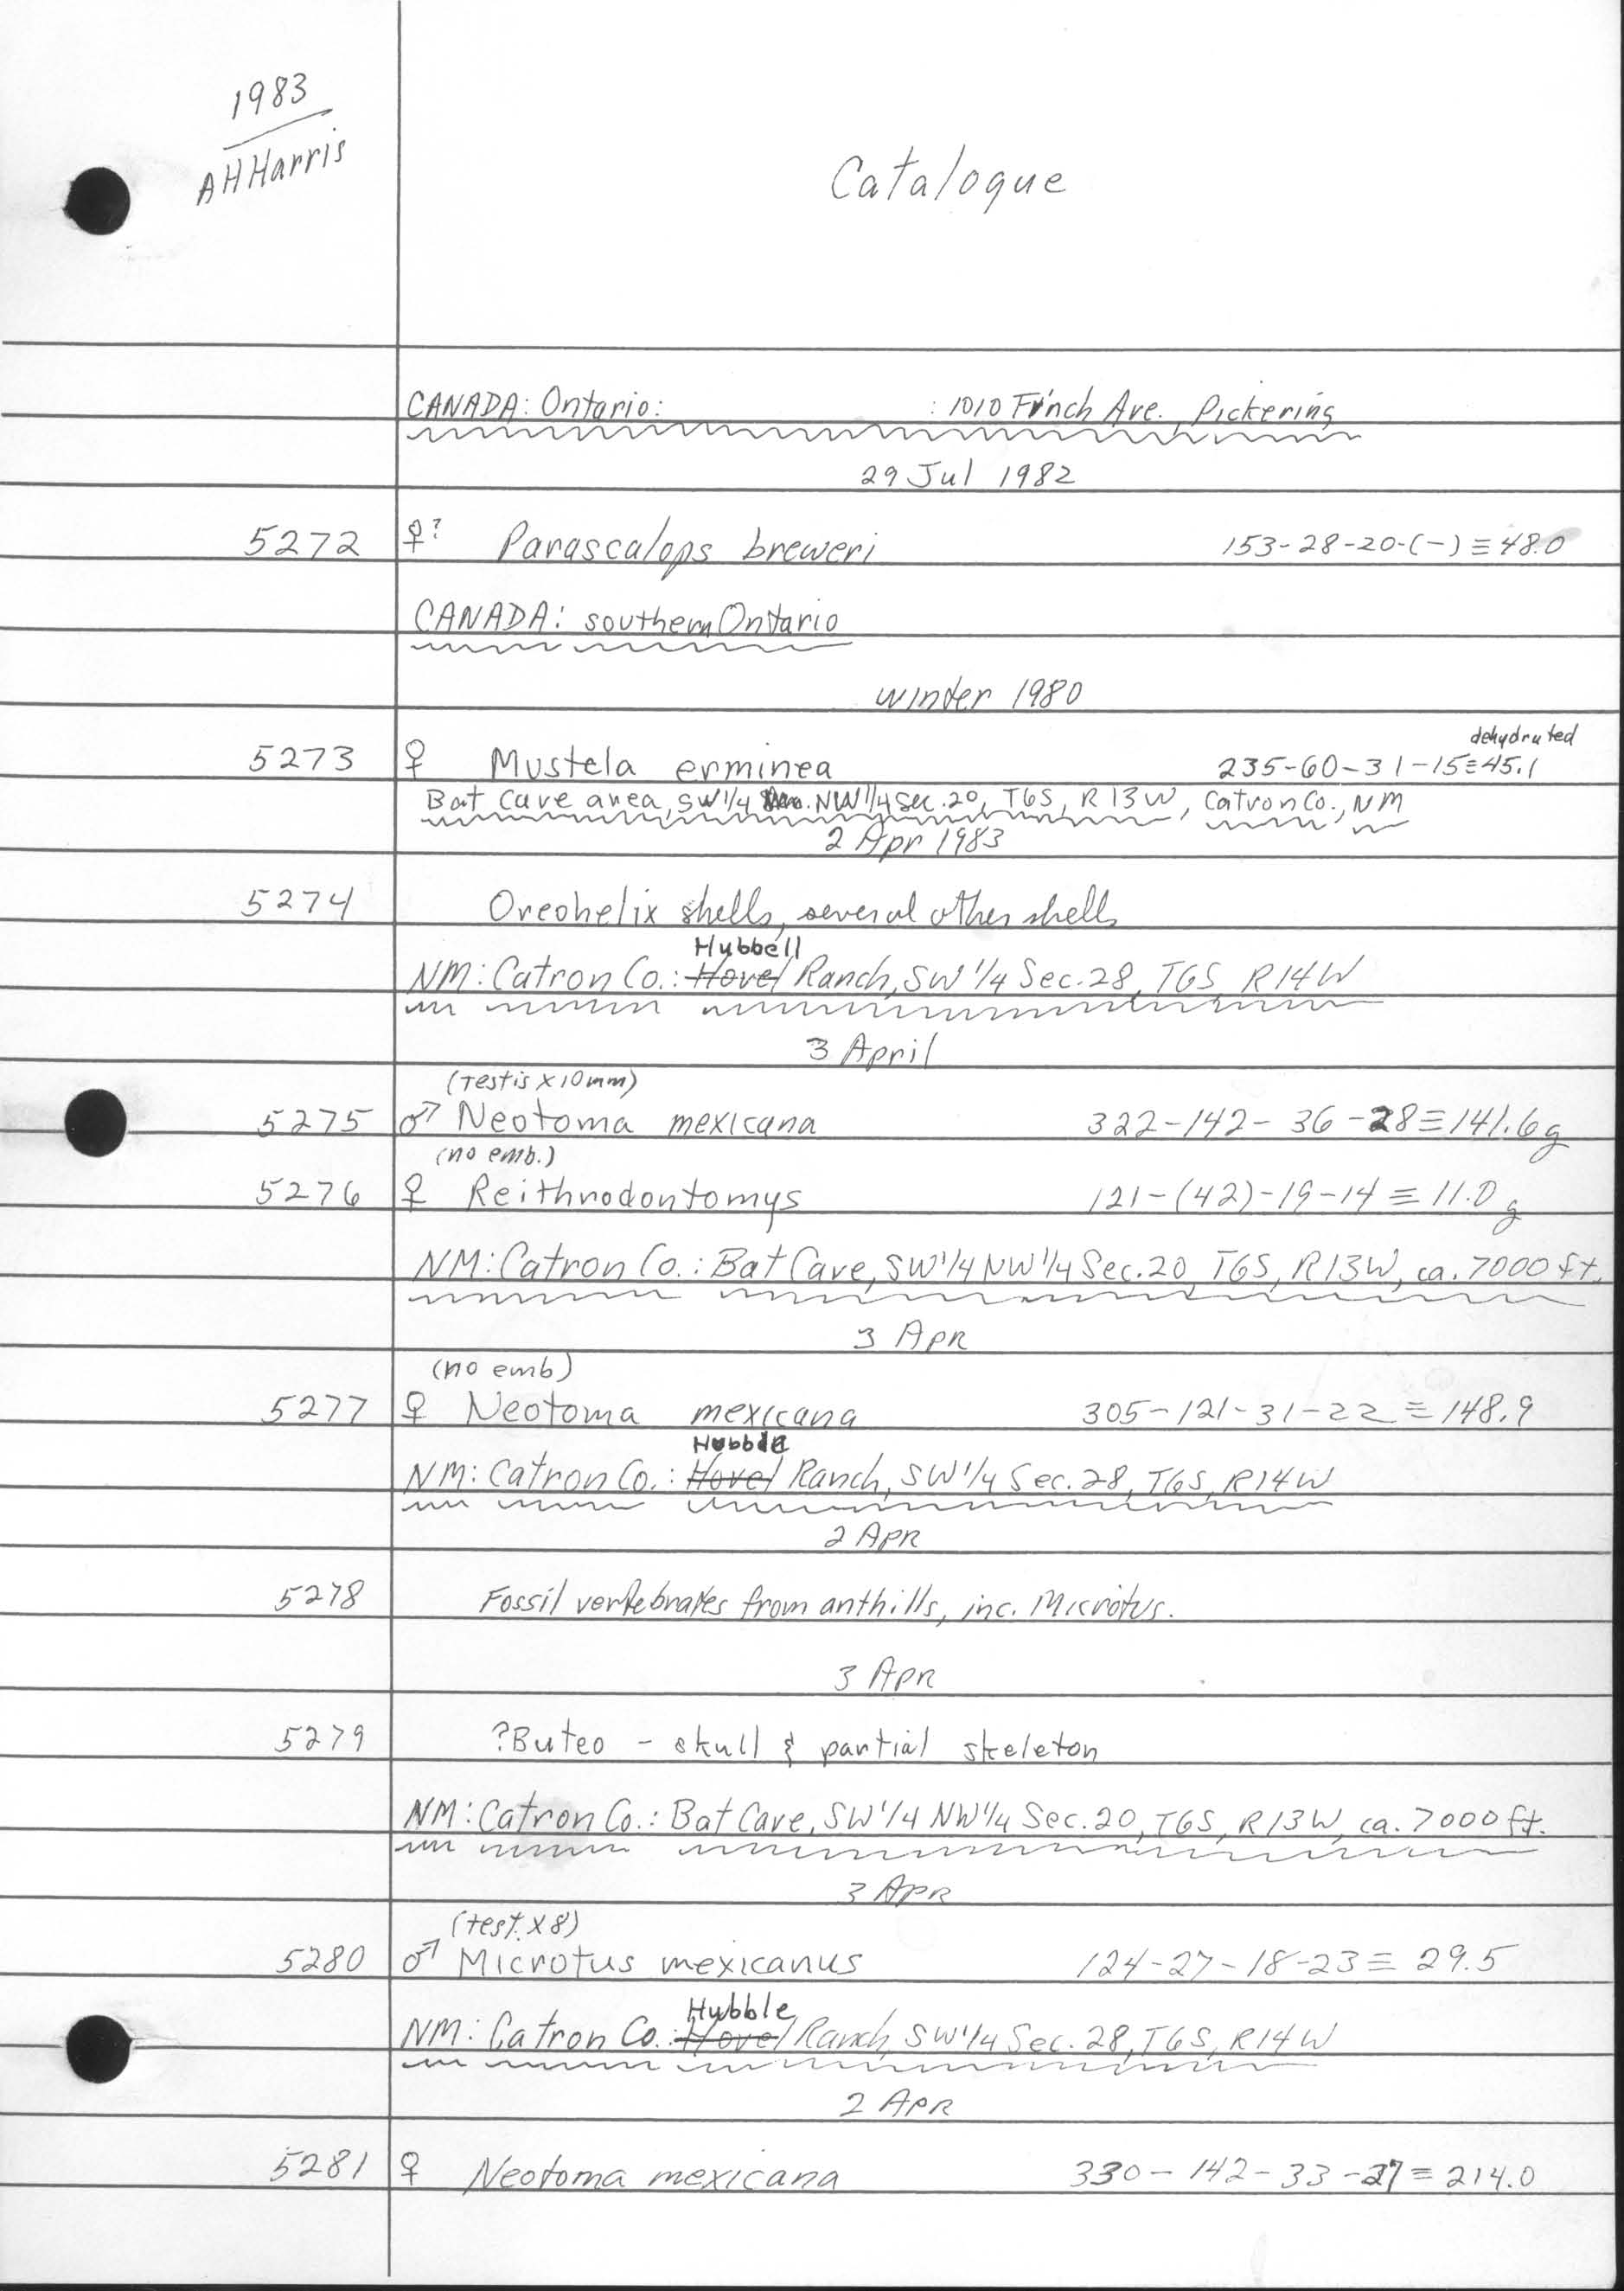 1983
AHHarris
Catalogue
CANADA: Ontario: : 1010 Finch Ave., Pickering
29 Jul 1982
5272 ♀? Parascalops breweri 153-28-20-(-)≡48.0
CANADA: southern Ontario
winter 1980
dehydrated
5273 ♀ Mustela erminea 235-60-31-15≡45.1
Bat Cave area, SW1/4 NW1/4 Sec.20, T6S, R13W, Catron Co., NM
2 Apr 1983
5274 Oreohelix shells, several other shells
Hubbell
NM: Catron Co.: Hovel Ranch, SW 1/4 Sec.28, T6S, R14W
3 April
(testis x 10mm)
5275 ♂ Neotoma mexicana 322-142-36-28≡141.6g
(no emb.)
5276 ♀ Reithrodontomys 121-(42)-19-14≡11.0g
NM: Catron Co.: Bat Cave, SW1/4 NW1/4 Sec.20, T6S, R13W, ca. 7000 ft.
3 Apr
(no emb)
5277 ♀ Neotoma mexicana 305-121-31-22≡148.9
Hubble
NM: Catron Co.: Hovel Ranch, SW1/4 Sec.28, T6S, R14W
2 Apr
5278 Fossil vertebrates from anthills, inc. Microtus.
3 Apr
5279 ?Buteo - skull & partial skeleton
NM: Catron Co.: Bat Cave, SW1/4 NW1/4 Sec.20, T6S, R13W, ca. 7000 ft.
3 Apr
(test. x 8)
5280 ♂ Microtus mexicanus 124-27-18-23≡29.5
Hubble
NM: Catron Co.: Hovel Ranch, SW1/4 Sec.28, T6S, R14W
2 Apr
5281 ♀ Neotoma mexicana 330-142-33-27≡214.0